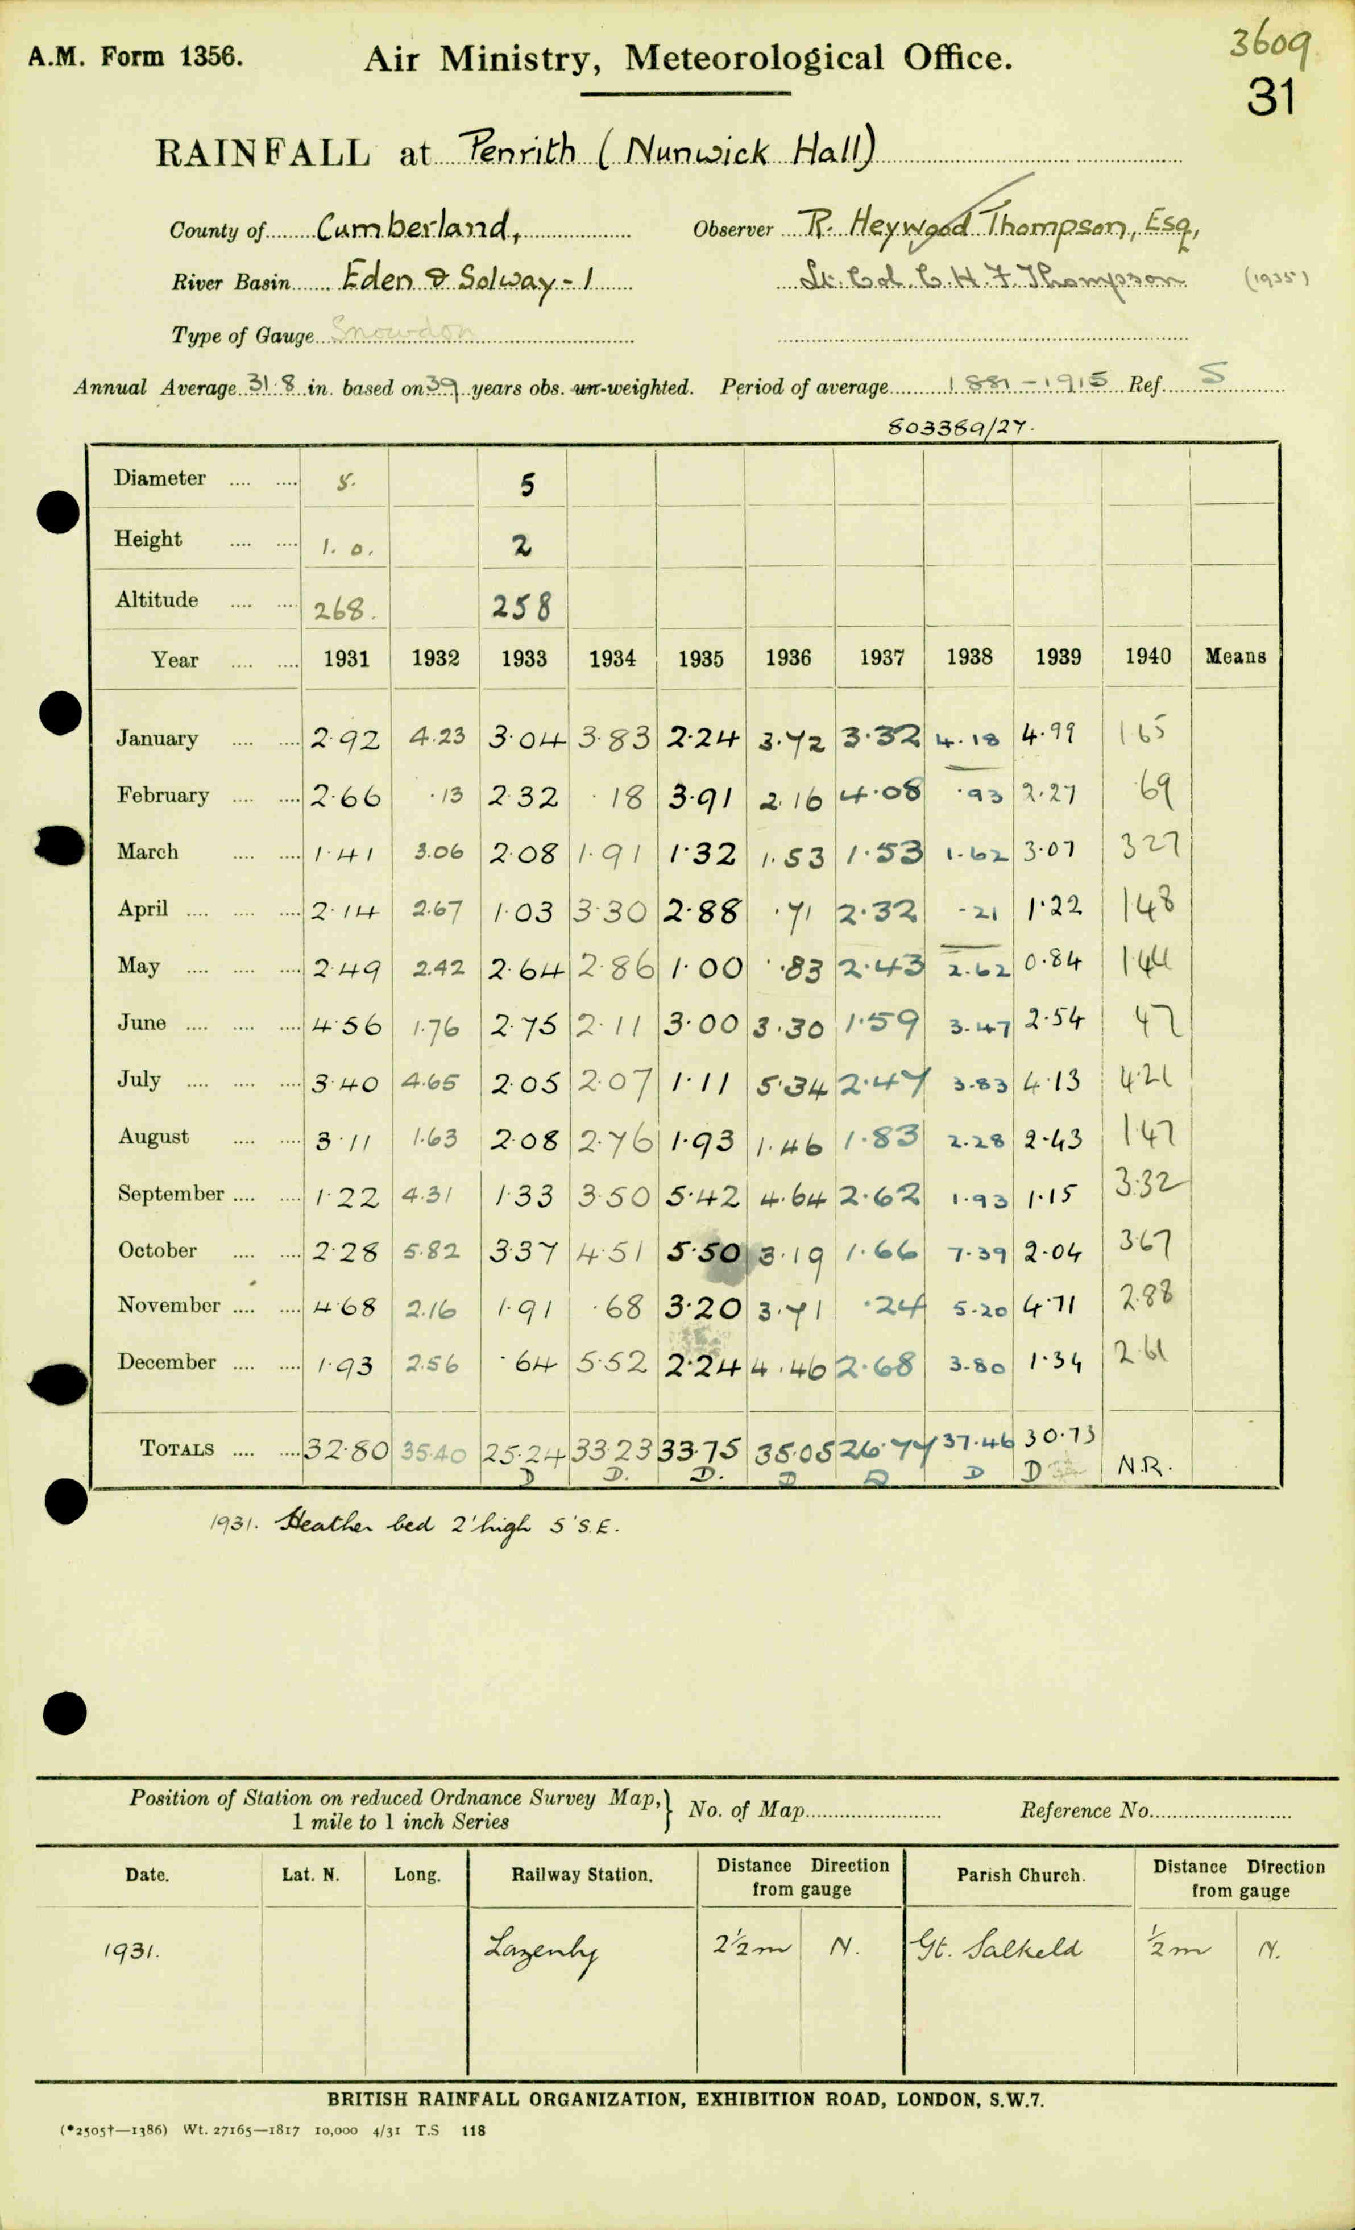 3609
A.M. Form 1356. Air Ministry, Meteorological Office.
31
RAINFALL at Penrith (Nunwick Hall)
County of Cumberland, Observer R. Heywood Thompson, Esq,
River Basin Eden & Solway - 1 Lt. Col. C. H. F. Thompson (1935)
Type of Gauge Snowdon
Annual Average 31.8 in. based on 39 years obs. un-weighted. Period of average 1881-1915 Ref. S
803389/27.
Diameter 5. 5
Height 1. 0. 2
Altitude 268. 258
Year 1931 1932 1933 1934 1935 1936 1937 1938 1939 1940 Means
January 2.92 4.23 3.04 3.83 2.24 3.72 3.32 4.18 4.99 1.65
February 2.66 .13 2.32 .18 3.91 2.16 4.08 .93 2.27 .69
March 1.41 3.06 2.08 1.91 1.32 1.53 1.53 1.62 3.07 3.27
April 2.14 2.67 1.03 3.30 2.88 .71 2.32 .21 1.22 1.48
May 2.49 2.42 2.64 2.86 1.00 .83 2.43 2.62 0.84 1.44
June 4.56 1.76 2.75 2.11 3.00 3.30 1.59 3.47 2.54 47
July 3.40 4.65 2.05 2.07 1.11 5.34 2.47 3.83 4.13 4.21
August 3.11 1.63 2.08 2.76 1.93 1.46 1.83 2.28 2.43 1.47
September 1.22 4.31 1.33 3.50 5.42 4.64 2.62 1.93 1.15 3.32
October 2.28 5.82 3.37 4.51 5.50 3.19 1.66 7.39 2.04 3.67
November 4.68 2.16 1.91 .68 3.20 3.71 .24 5.20 4.71 2.88
December 1.93 2.56 .64 5.52 2.24 4.46 2.68 3.80 1.34 2.61
TOTALS 32.80 35.40 25.24 33.23 33.75 35.05 26.77 37.46 30.73 N.R.
D D. D. D D D D
1931. Heather bed 2' high 5' S.E.
Position of Station on reduced Ordnance Survey Map, 1 mile to 1 inch Series } No. of Map Reference No.
Date. Lat. N. Long. Railway Station. Distance Direction from gauge Parish Church. Distance Direction from gauge
1931. Lazenby 2½m N. Gt. Salkeld ½m N.
BRITISH RAINFALL ORGANIZATION, EXHIBITION ROAD, LONDON, S.W.7.
(*2505†—1386) Wt. 27165—1817 10,000 4/31 T.S 118